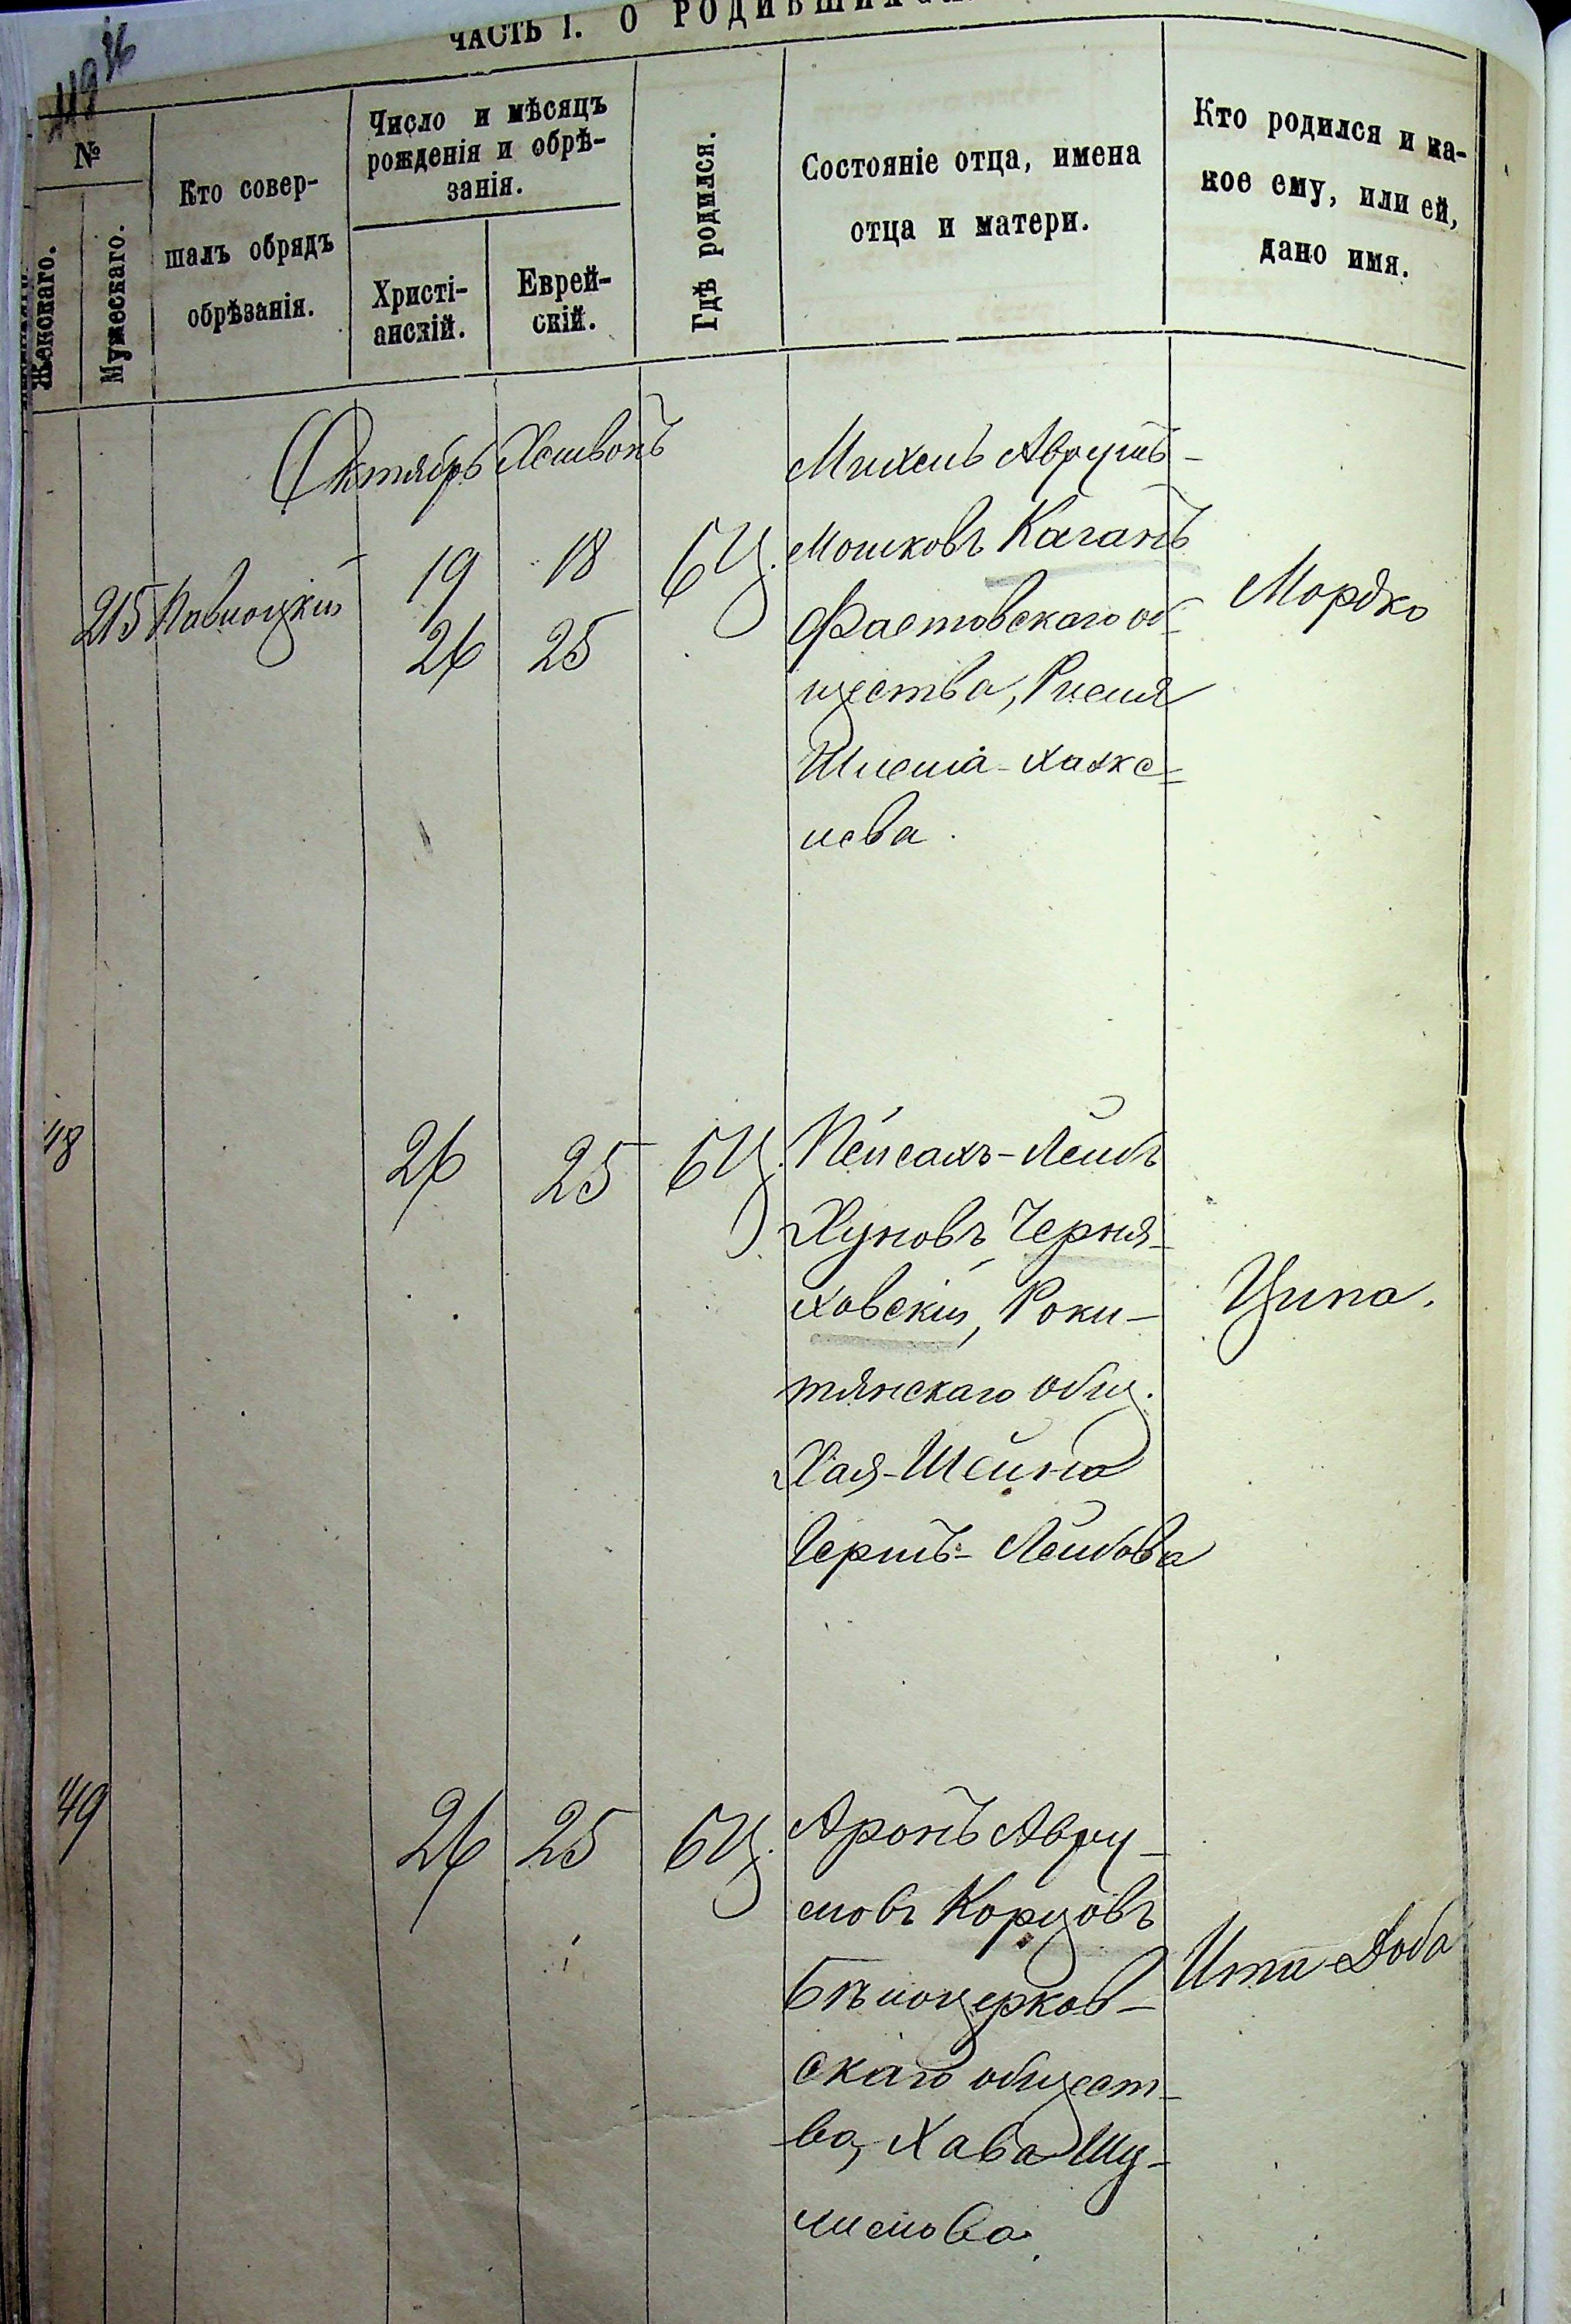 ЧАСТЬ I. О РОДИВШИХСЯ
36
№
Женскаго.
Мужескаго.
Кто совер-
шалъ обрядъ
обрѣзанія.
Число и мѣсяцъ
рожденія и обрѣ-
занія.
Христі-
анскій.
Еврей-
скій.
Гдѣ родился.
Состояніе отца, имена
отца и матери.
Кто родился и ка-
кое ему, или ей,
дано имя.
Октябрь Хешвонъ
215 Паволоцкій
19 18
26 25
БЦ.
Михель Аврумъ-
Мошковъ Каганъ
Фастовскаго об-
щества,
Мордко
48
26 25 БЦ.
Пейсахъ-Лейбъ
Хуновъ Черня-
ховскій, Роки-
тянскаго общ.
Хая-Шейна
Гершъ-Лейбова
Ципа.
49
26 25 БЦ.
Аронъ Авру-
мовъ Корцовъ
Бѣлоцерков-
скаго общест-
ва, Хава Шу-
лимова.
Ита-Доба